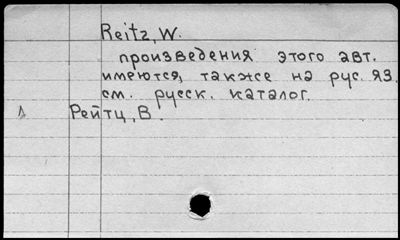 Reitz, W.
произведения этого авт.
имеются, также на рус. яз.
см. русск. каталог.
Рейтц, В.